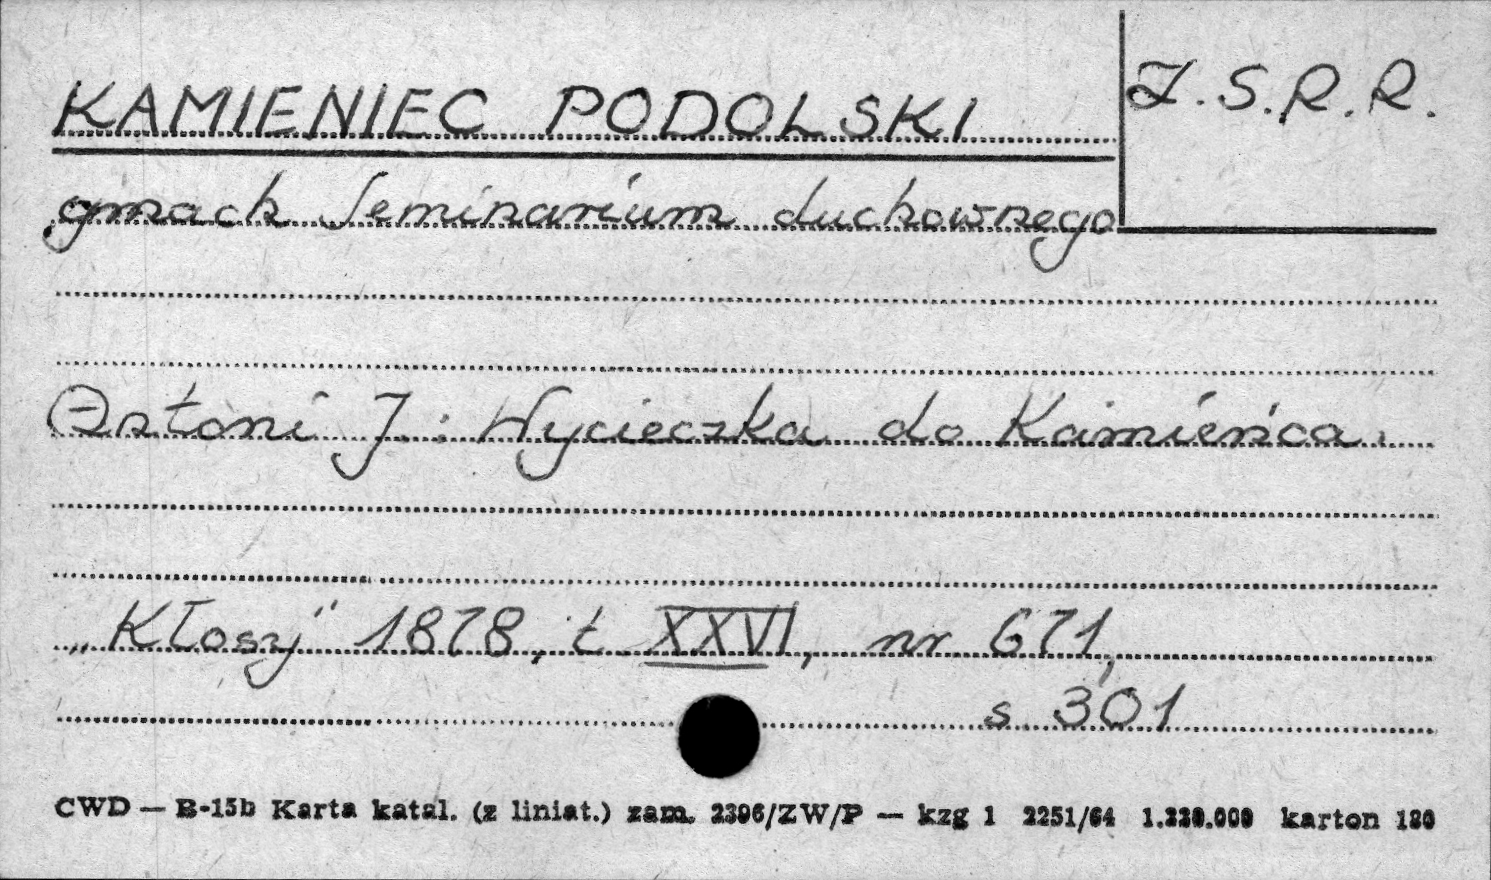 KAMIENIEC PODOLSKI
Z.S.R.R.
gmach Seminarium duchownego
Antoni J.: Wycieczka do Kamieńca.
„Kłosy" 1878, t. XXVI, nr. 671,
s 301
CWD — B-15b Karta katal. (z liniat.) zam. 2396/ZW/P — kzg 1 2251/64 1.220.000 karton 180